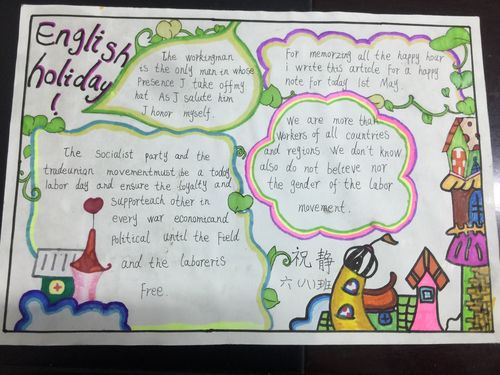 English
holiday
!
The workingman
is the only man in whose
Presence J take offmy
hat As J salute him
J honor myself.
For memorzing all the happy hour
i write this article for a happy
note for today 1st May.
We are more than
workers of all countries
and regions We don't know
also do not believe nor
the gender of the labor
movement.
The socialist party and the
tradeunion movementmust be a today
labor day and ensure the loyalty and
supporteach other in
every war economicand
Political until the Field
and the laboreris
Free.
祝静
六(八)班